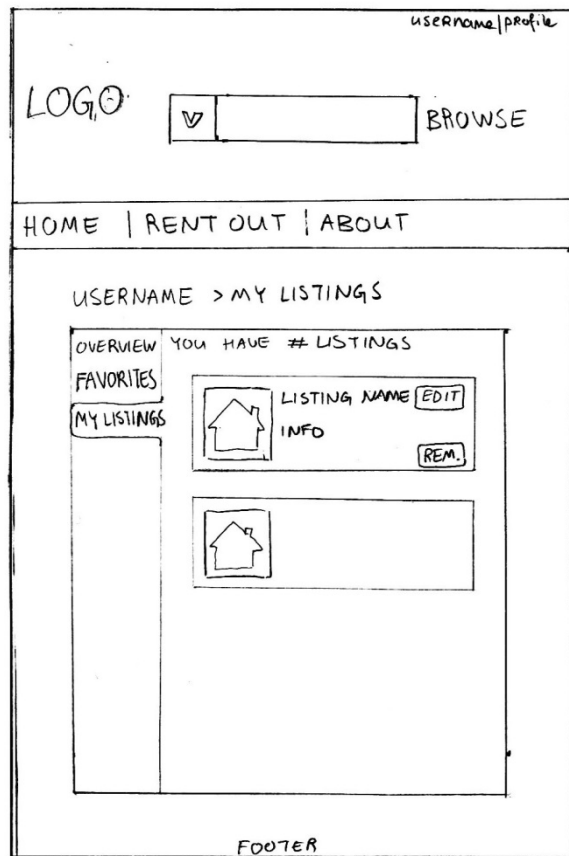 username/profile
LOGO
V
BROWSE
HOME | RENT OUT | ABOUT
USERNAME > MY LISTINGS
OVERVIEW
FAVORITES
MY LISTINGS
YOU HAVE # LISTINGS
LISTING NAME
EDIT
INFO
REM.
FOOTER